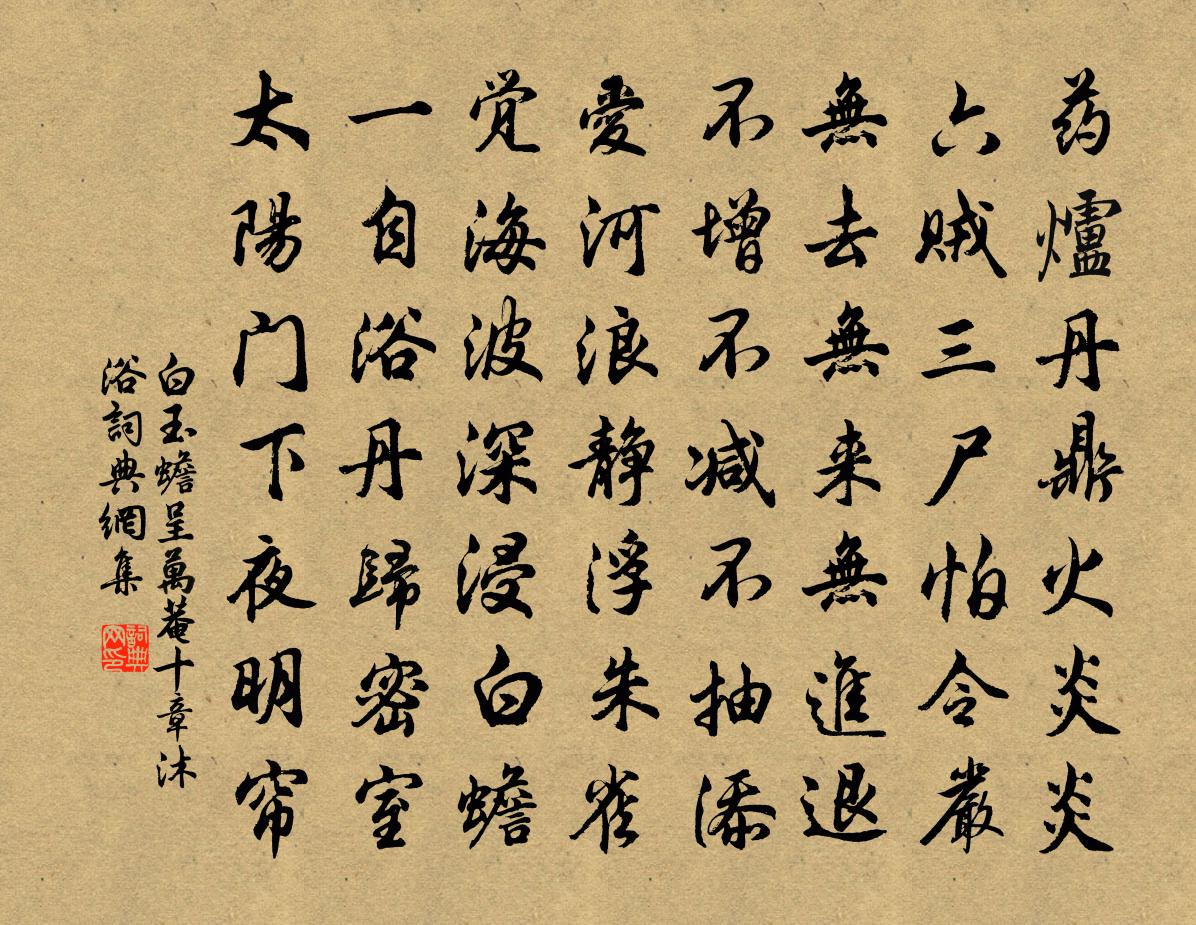 药爐丹鼎火炎炎
六贼三尸怕令嚴
無去無来無進退
不增不减不抽添
愛河浪静浮朱雀
觉海波深浸白蟾
一自浴丹歸密室
太陽门下夜明帘
白玉蟾呈萬菴十章沐
浴詞典網集
詞典网印